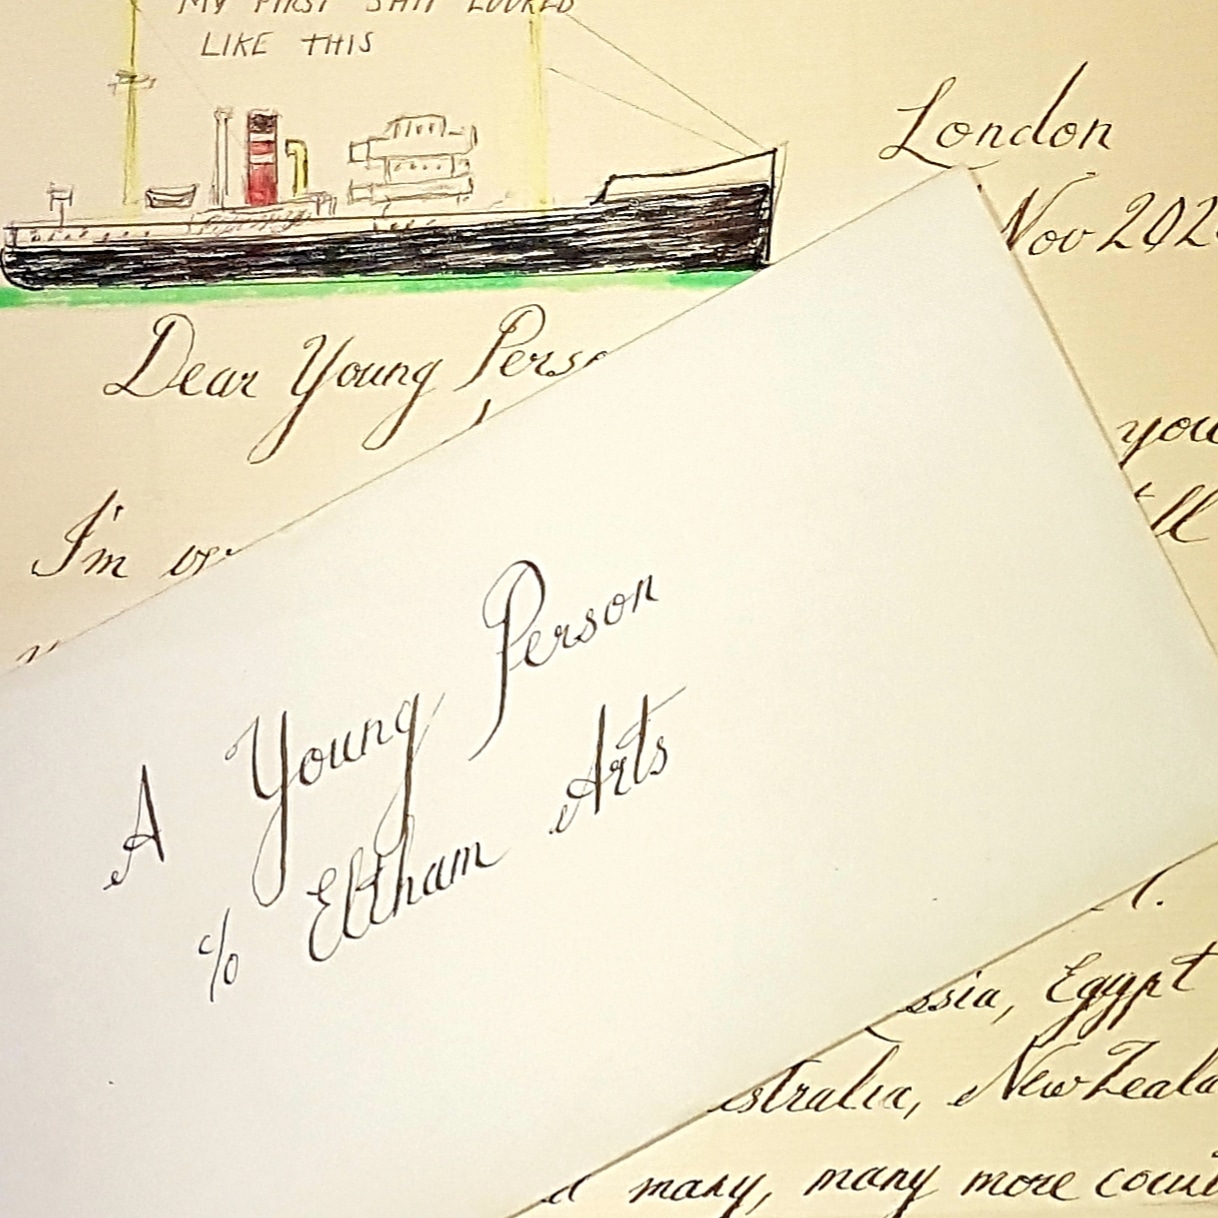 MY FIRST SHIP LOOKED
LIKE THIS
London
Nov 202
Dear Young Perso
you
I'm ve
ll
A Young Person
c/o Eltham Arts
ssia, Egypt
stralia, New Zeala
many, many more count